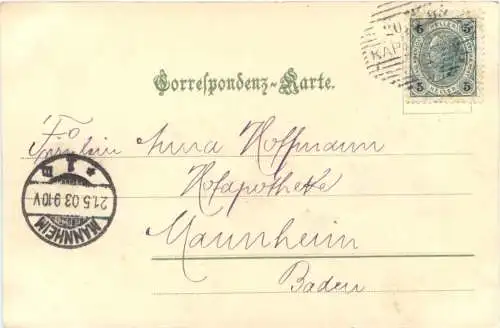 5 HELLER 5
20
KAP
5 HELLER 5
Correspondenz-Karte.
Fräulein Anna Hoffmann
Hofapotheke
Mannheim
Baden
* 1 m
21.5.03 9-10V
MANNHEIM